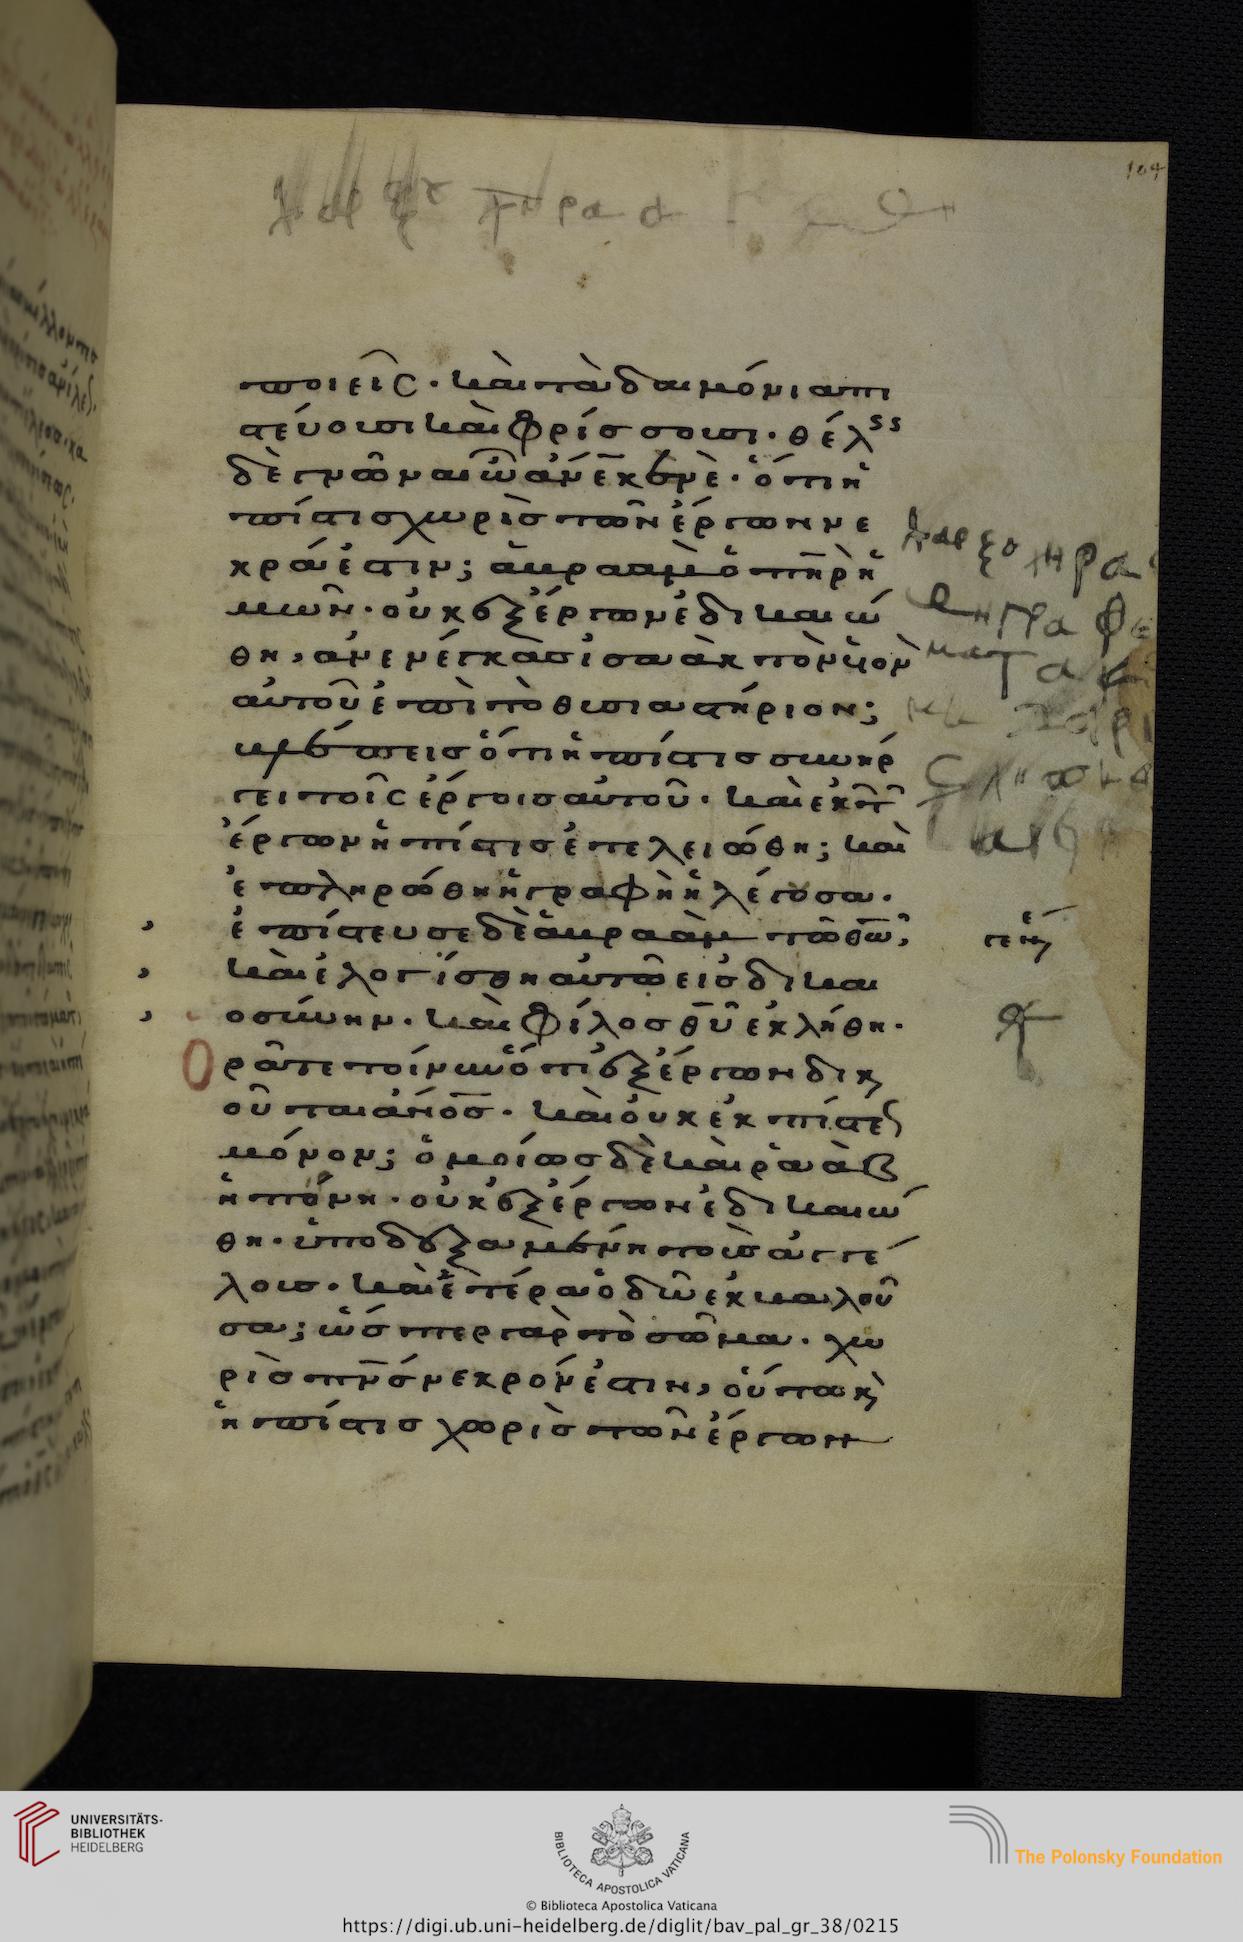 104
ποιεῖς· καὶ τὰ δαιμόνια πι
στεύουσι καὶ φρίσσουσι· θέλεις
δὲ γνῶναι ὦ ἄνε κενὲ· ὅτι ἡ
πίστις χωρὶς τῶν ἔργων νε
κρά ἐστιν; ἀβραὰμ ὁ πηρ ἡ
μῶν· οὐκ ἐξ ἔργων ἐδικαιώ
θη, ἀνενέγκας ἰσαὰκ τὸν υἱὸν
αὐτοῦ ἐπὶ τὸ θυσιαστήριον;
βλέπεις ὅτι ἡ πίστις συνήρ
γει τοῖς ἔργοις αὐτοῦ· καὶ ἐκ τῶν
ἔργων ἡ πίστις ἐτελειώθη; καὶ
ἐπληρώθη ἡ γραφὴ ἡ λέγουσα·
ἐπίστευσε δὲ ἀβραὰμ τῶ θω,
καὶ ἐλογίσθη αὐτῶ εἰς δικαι
οσύνην· καὶ φίλος θυ ἐκλήθη·
Ὁρᾶτε τοίνυν ὅτι ἐξ ἔργων δικαι
οῦται ἄνος· καὶ οὐκ ἐκ πίστεως
μόνον; ὁμοίως δὲ καὶ ῥαὰβ
ἡ πόρνη· οὐκ ἐξ ἔργων ἐδικαιώ
θη· ὑποδεξαμένη τοὺς ἀγγέ
λους· καὶ ἑτέρα ὁδῶ ἐκβαλοῦ
σα; ὥσπερ γὰρ τὸ σῶμα· χω
ρὶς πνς νεκρόν ἐστιν, οὕτω καὶ
ἡ πίστις χωρὶς τῶν ἔργων
UNIVERSITÄTS-
BIBLIOTHEK
HEIDELBERG
BIBLIOTECA APOSTOLICA VATICANA
The Polonsky Foundation
© Biblioteca Apostolica Vaticana
https://digi.ub.uni-heidelberg.de/diglit/bav_pal_gr_38/0215